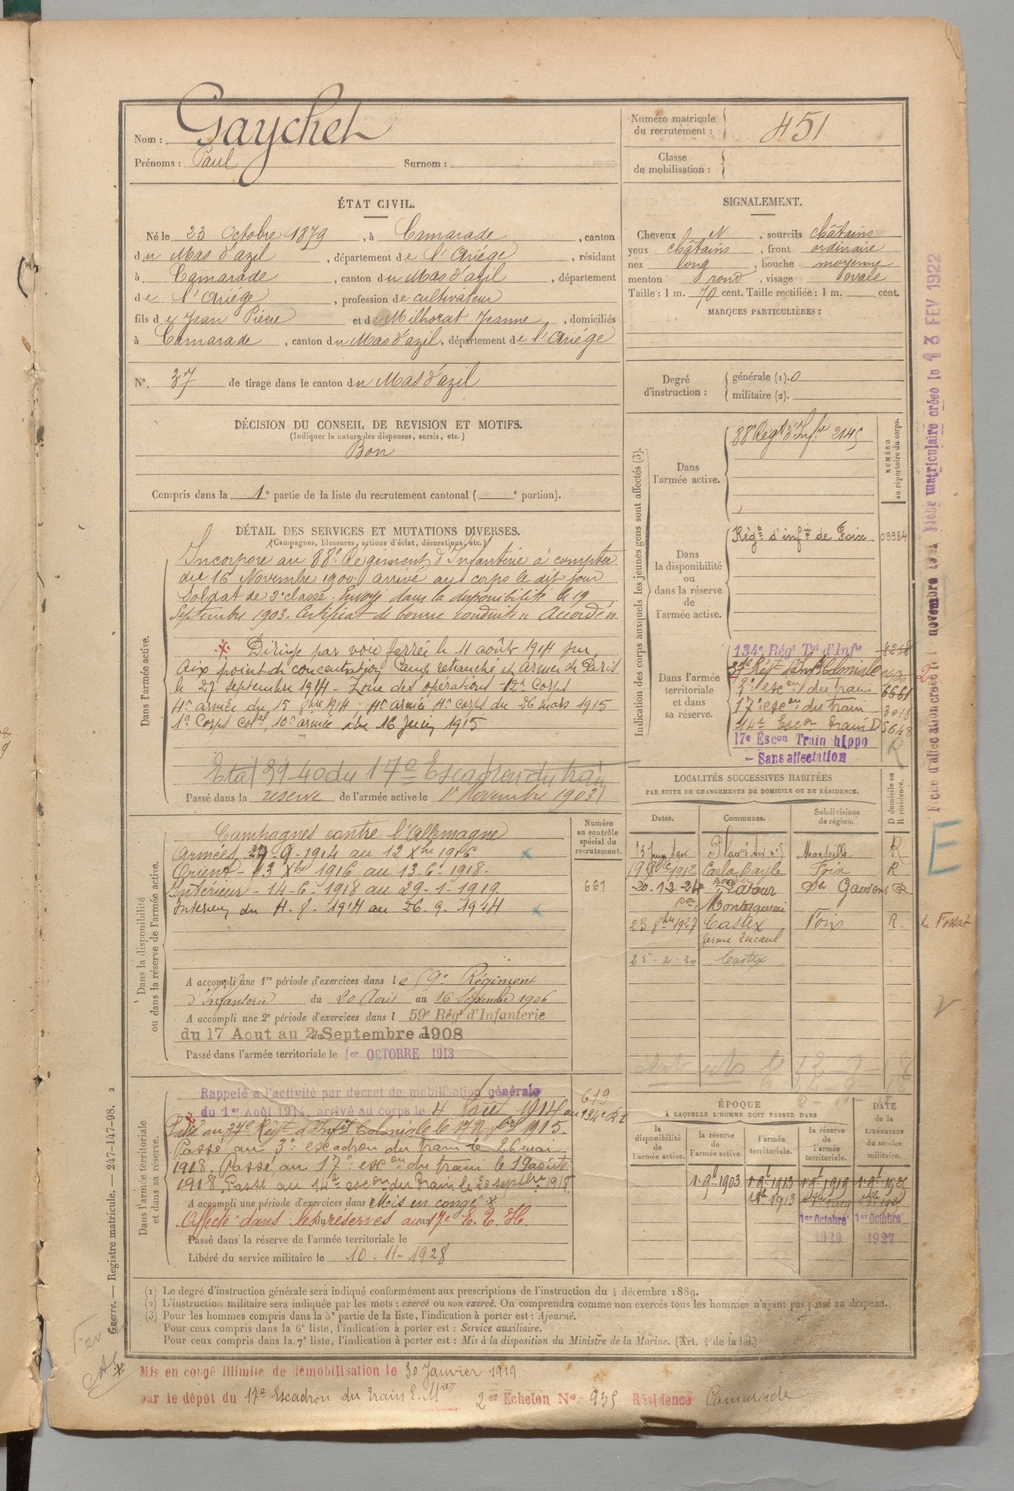 Nom : Gaychet
Prénoms : Paul Surnom :
Numéro matricule
du recrutement : 451
Classe
de mobilisation :
ÉTAT CIVIL.
Né le 23 Octobre 1879, à Camarade, canton
du Mas d'azil, département de l'Ariége, résidant
à Camarade, canton du Mas d'azil, département
de l'Ariége, profession de cultivateur
fils de Jean Pierre et de Milhorat Jeanne, domiciliés
à Camarade, canton du Mas d'azil, département de l'Ariége
N° 37 de tirage dans le canton du Mas d'azil
SIGNALEMENT.
Cheveux N, sourcils châtains
yeux châtains, front ordinaire
nez long, bouche moyenne
menton rond, visage ovale
Taille : 1 m. 70 cent. Taille rectifiée : 1 m. cent.
MARQUES PARTICULIÈRES :
Degré
d'instruction :
générale (1). 0
militaire (2).
DÉCISION DU CONSEIL DE REVISION ET MOTIFS.
(Indiquer la nature des dispenses, sursis, etc.)
Bon
Compris dans la 1e partie de la liste du recrutement cantonal ( e portion).
DÉTAIL DES SERVICES ET MUTATIONS DIVERSES.
(Campagnes, blessures, actions d'éclat, décorations, etc.)
Dans l'armée active.
Incorporé au 88e Régiment d'Infanterie à compter
du 16 Novembre 1900 arrivé au corps le dit jour
Soldat de 2e classe. Envoyé dans la disponibilité le 19
Septembre 1903. Certificat de bonne conduite Accordé
Dirigé par voie ferrée le 11 août 1914 sur
Aix point de concentration Camp retranché et Armée de Paris
le 27 septembre 1914 - Zone des opérations 12e Corps
4e armée du 15 1914 ; 4e armée 4e corps du 26 mars 1915
1e Corps col, 10e armée 16 Juin 1915
Etat 39-40 du 17e Escadron du train
Passé dans la réserve de l'armée active le 1er Novembre 1903
Indication des corps auxquels les jeunes gens sont affectés (3).
NUMÉRO
au répertoire du corps.
Dans
l'armée active.
88e Régt d'Infie 2145
Dans
la disponibilité
ou
dans la réserve
de
l'armée active.
Régt d'infie de Foix 09384
Dans l'armée
territoriale
et dans
sa réserve.
134e Régt Tal d'Infie
37e Régt d'Infie Coloniale
3e escon du train 6661
17e escon du train 3018
14e Escon Train D 5648
17e Escon Train hippo
- Sans affectation R
Dans la disponibilité
ou dans la réserve de l'armée active.
Campagnes contre l'Allemagne
Armées 27-9-1914 au 12 Xbre 1916
Orient - 13 Xbre 1916 au 13-6-1918.
Intérieur - 14-6-1918 au 29-1-1919
Intérieur du 4-8-1914 au 26.9.1914
Numéro
au contrôle
spécial du
recrutement.
667
A accompli une 1re période d'exercices dans le 59e Régiment
d'Infanterie du 20 Août au 16 Septembre 1906
A accompli une 2e période d'exercices dans l 59e Régt d'Infanterie
du 17 Aout au 2 Septembre 1908
Passé dans l'armée territoriale le 1er OCTOBRE 1913
LOCALITÉS SUCCESSIVES HABITÉES
PAR SUITE DE CHANGEMENTS DE DOMICILE OU DE RÉSIDENCE.
Dates. Communes. Subdivisions
de région. D domicile ou
R résidence.
Marseille R
1912 Carla Bayle Foix R
20-12-24 Latour St Gaudens R
Montesquieu
23 8bre 1927 Castex Foix R. Le Fossat
25-2-30 Castex
Dans l'armée territoriale
et dans sa réserve.
Rappelé à l'activité par décret de mobilisation générale
du 1er Août 1914, arrivé au corps le 4 Août 1914 au 134e R.I.
619
Passé au 37e Régt d'Infie Coloniale le 1915.
Passé au 3e escadron du train le 26 mai
1918. Passé au 17e escon du train le 19 août
1918. Passé au 14e escon du train le 20 septbre 1918
A accompli une période d'exercices dans Mis en congé x
Affecté dans les réserves au 17e E. T. H.
Passé dans la réserve de l'armée territoriale le
Libéré du service militaire le 10-11-1928
ÉPOQUE
À LAQUELLE L'HOMME DOIT PASSER DANS
DATE
de la
LIBÉRATION
du service
militaire.
la
disponibilité
de
l'armée active.
la réserve
de
l'armée active.
l'armée
territoriale.
la réserve
de
l'armée
territoriale.
1-9e 1903 1-9e 1913 1-9e 1919
1913
1er Octobre 1er Octobre
1927
(1) Le degré d'instruction générale sera indiqué conformément aux prescriptions de l'instruction du 4 décembre 1889.
(2) L'instruction militaire sera indiquée par les mots : exercé ou non exercé. On comprendra comme non exercés tous les hommes n'ayant pas passé au drapeau.
(3) Pour les hommes compris dans la 5e partie de la liste, l'indication à porter est : Ajourné.
Pour ceux compris dans la 6e liste, l'indication à porter est : Service auxiliaire.
Pour ceux compris dans la 7e liste, l'indication à porter est : Mis à la disposition du Ministre de la Marine. (Art. 4 de la loi.)
Mis en congé illimité de démobilisation le 30 Janvier 1919
par le dépôt du 17e Escadron du train 2er Echelon No 935 Résidence Camarade
Guerre. — Registre matricule. — 247-147-98.
matriculaire créée le 13 FEV 1922
E